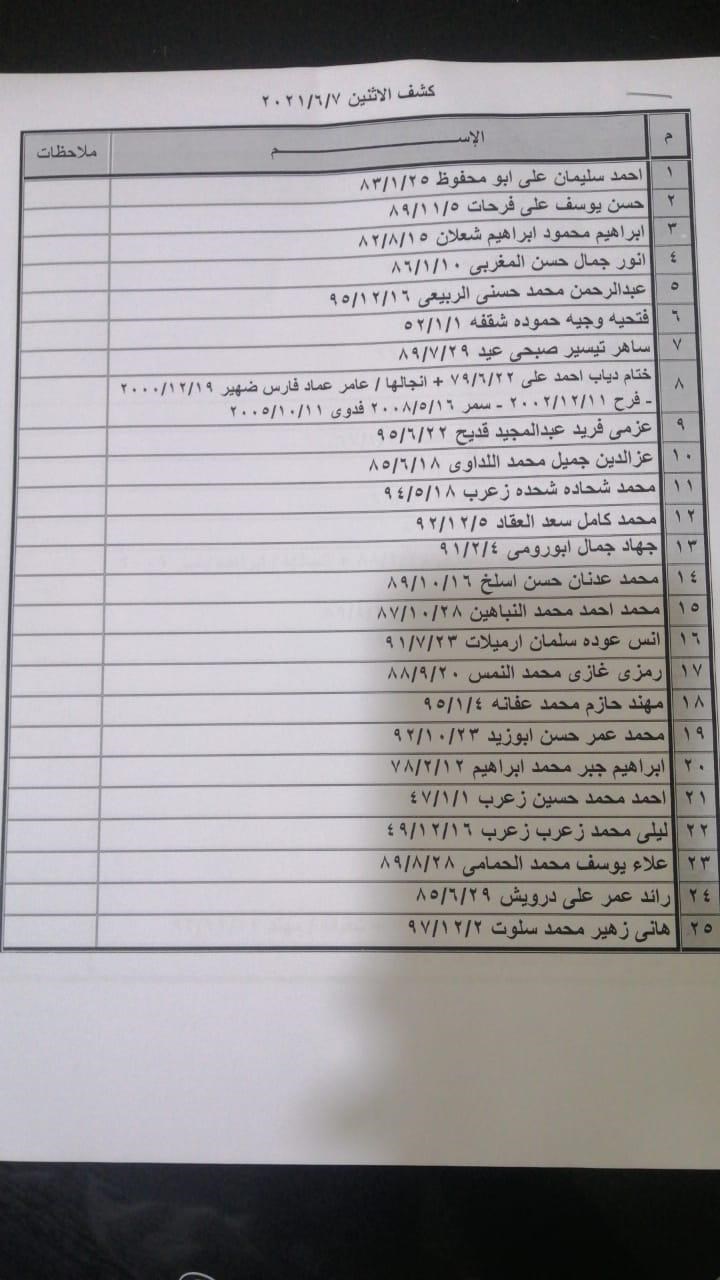 كشف الاثنين ٢٠٢١/٦/٧
م الإســــــــــــــــم ملاحظات
١ احمد سليمان على ابو محفوظ ٨٣/١/٢٥
٢ حسن يوسف على فرحات ٨٩/١١/٥
٣ ابراهيم محمود ابراهيم شعلان ٨٢/٨/١٥
٤ انور جمال حسن المغربى ٨٦/١/١٠
٥ عبدالرحمن محمد حسنى الربيعى ٩٥/١٢/١٦
٦ فتحيه وجيه حموده شقفه ٥٢/١/١
٧ ساهر تيسير صبحى عيد ٨٩/٧/٢٩
٨ ختام دياب احمد على ٧٩/٦/٢٢ + انجالها / عامر عماد فارس ضهير ٢٠٠٠/١٢/١٩
- فرح ٢٠٠٢/١٢/١١ - سمر ٢٠٠٨/٥/١٦ فدوى ٢٠٠٥/١٠/١١
٩ عزمى فريد عبدالمجيد قديح ٩٥/٦/٢٢
١٠ عزالدين جميل محمد اللداوى ٨٥/٦/١٨
١١ محمد شحاده شحده زعرب ٩٤/٥/١٨
١٢ محمد كامل سعد العقاد ٩٢/١٢/٥
١٣ جهاد جمال ابورومى ٩١/٢/٤
١٤ محمد عدنان حسن اسلخ ٨٩/١٠/١٦
١٥ محمد احمد محمد النباهين ٨٧/١٠/٢٨
١٦ انس عوده سلمان ارميلات ٩١/٧/٢٣
١٧ رمزى غازى محمد النمس ٨٨/٩/٢٠
١٨ مهند حازم محمد عفانه ٩٥/١/٤
١٩ محمد عمر حسن ابوزيد ٩٢/١٠/٢٣
٢٠ ابراهيم جبر محمد ابراهيم ٧٨/٢/١٢
٢١ احمد محمد حسين زعرب ٤٧/١/١
٢٢ ليلى محمد زعرب زعرب ٤٩/١٢/١٦
٢٣ علاء يوسف محمد الحمامى ٨٩/٨/٢٨
٢٤ رائد عمر على درويش ٨٥/٦/٢٩
٢٥ هانى زهير محمد سلوت ٩٧/١٢/٢